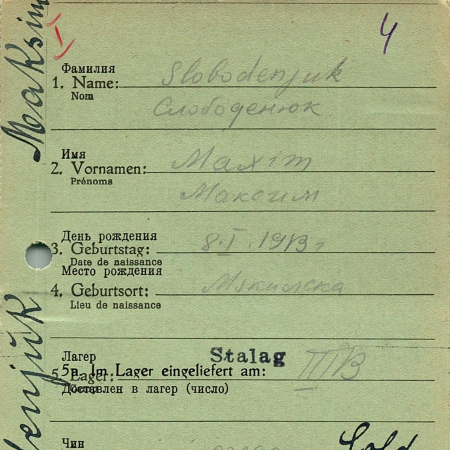 Maksim
4
Фамилия
1. Name: Slobodenjuk
Nom
Слободенюк
Имя
2. Vornamen: Maxim
Prénoms
Максим
День рождения
3. Geburtstag: 8.I.1913г
Date de naissance
Место рождения
4. Geburtsort:
Lieu de naissance
Лагер
Stalag III B
5a. Im Lager eingeliefert am:
5. Lager:
Доставлен в лагер (число)
Чин
Sold